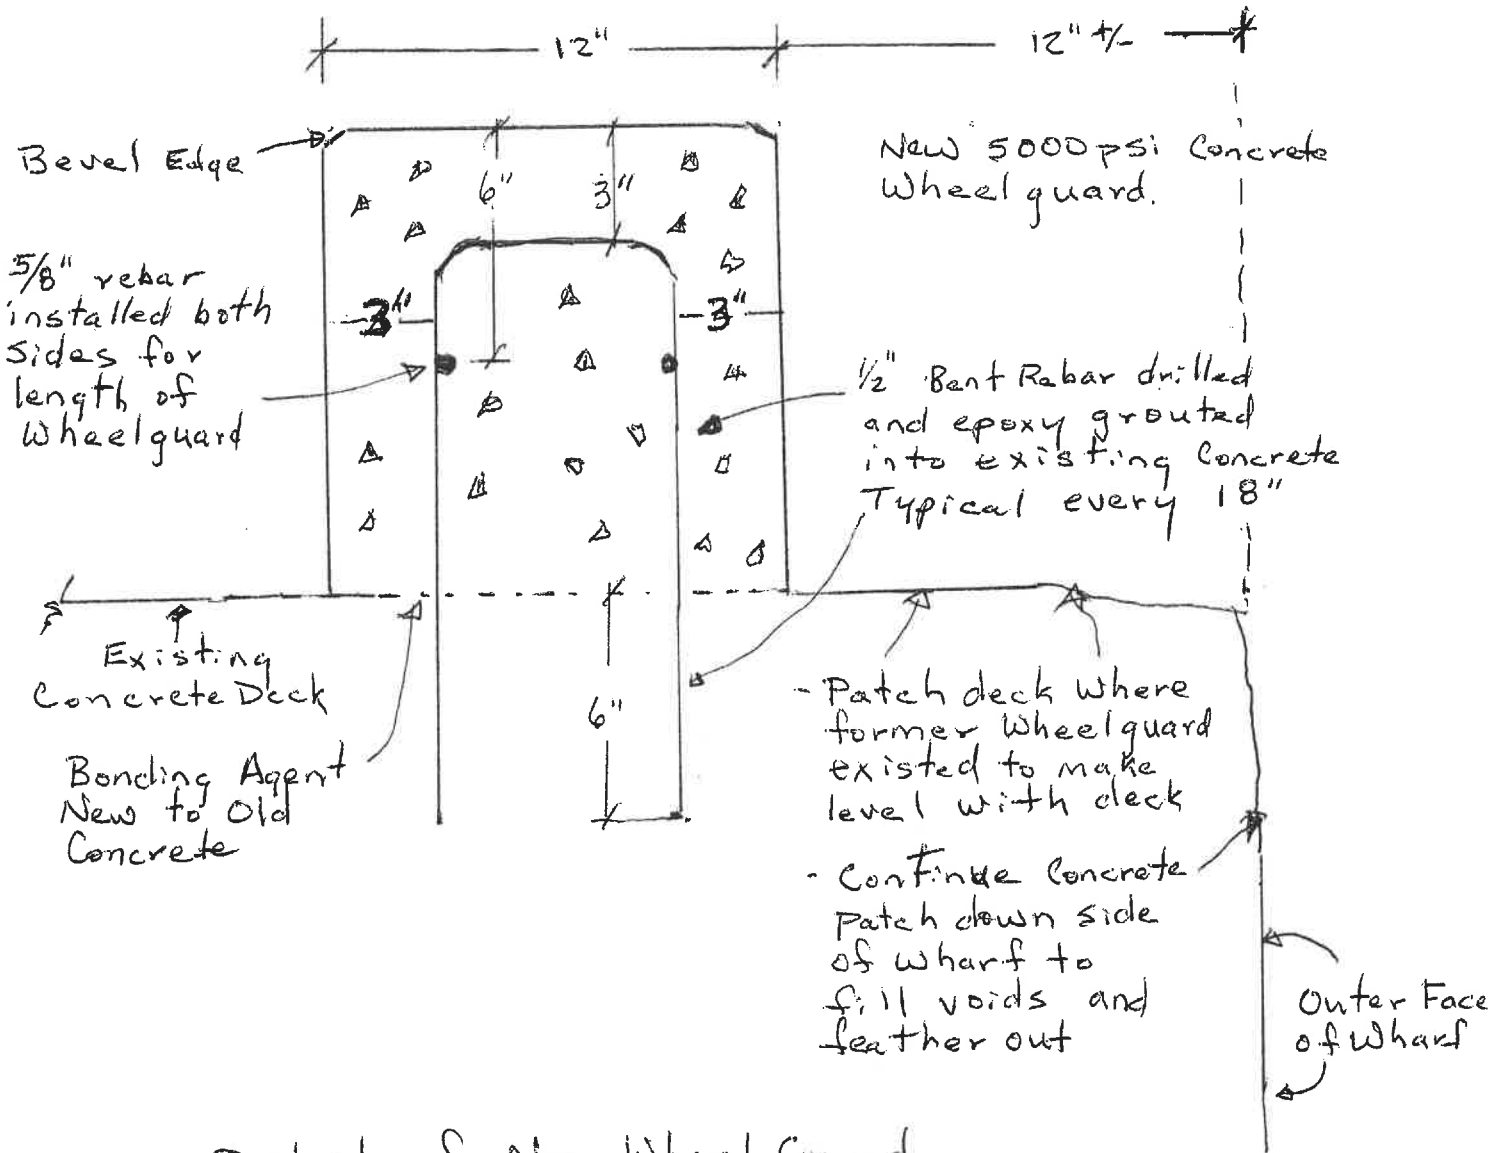 12"
12" +/-
Bevel Edge
6"
3"
New 5000 psi Concrete
Wheelguard.
5/8" rebar
installed both
sides for
length of
Wheelguard
3"
3"
1/2" Bent Rebar drilled
and epoxy grouted
into existing Concrete
Typical every 18"
Existing
Concrete Deck
Bonding Agent
New to Old
Concrete
6"
- Patch deck where
former Wheelguard
existed to make
level with deck
- Continue Concrete
patch down side
of wharf to
fill voids and
feather out
Outer Face
of Wharf